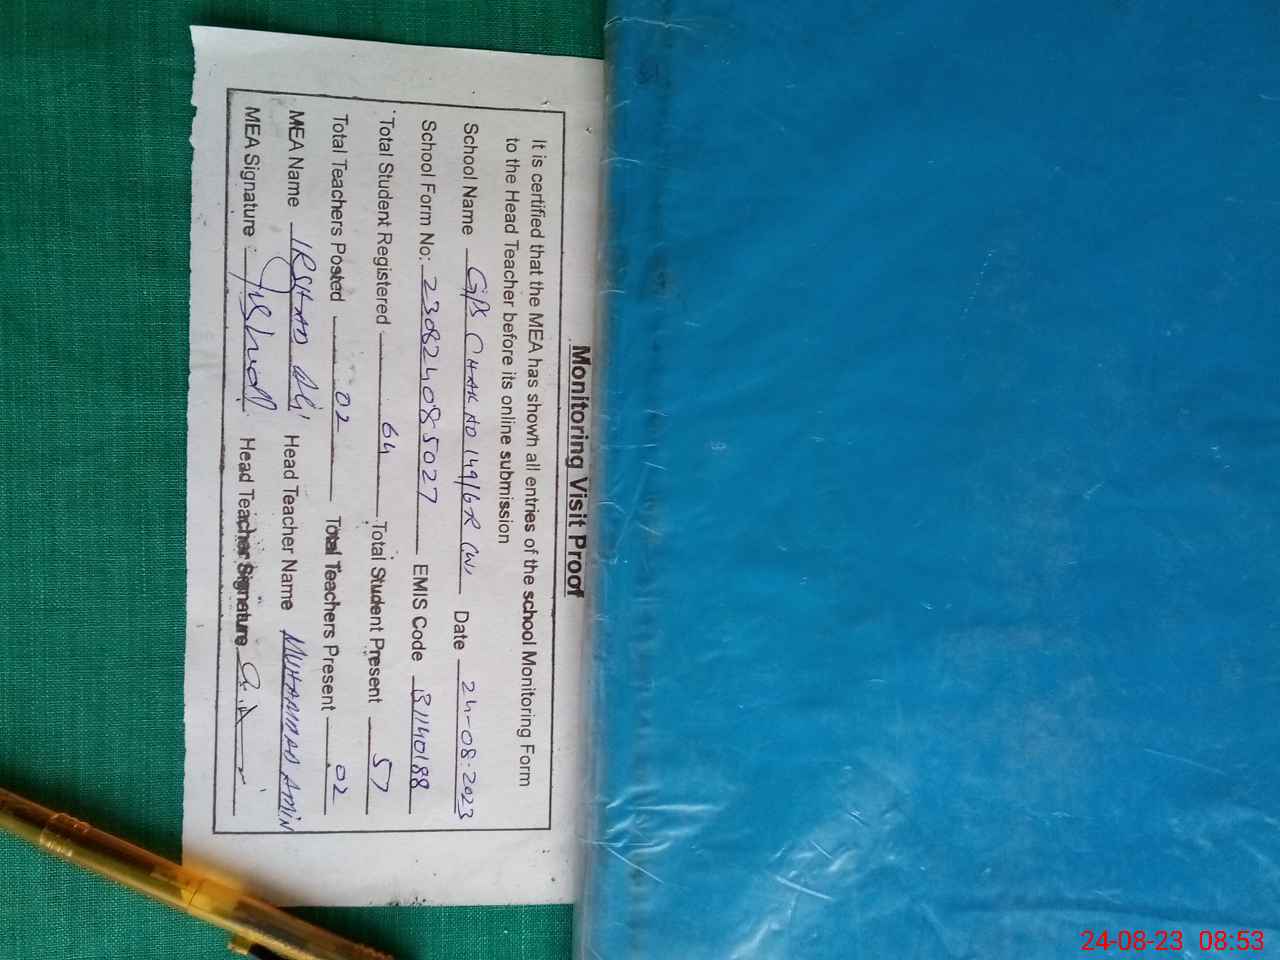 Monitoring Visit Proof
It is certified that the MEA has shown all entries of the school Monitoring Form
to the Head Teacher before its online submission
School Name GPS CHAK NO 149/6R (W) Date 24-08-2023
School Form No: 230824085027 EMIS Code 31140188
Total Student Registered 64 Total Student Present 57
Total Teachers Posted 02 Total Teachers Present 02
MEA Name IRSHAD Ali Head Teacher Name MUHAMMAD AMiN
MEA Signature Irshad Head Teacher Signature
24-08-23 08:53